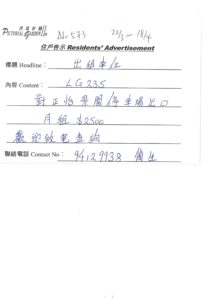 PICTORIAL GARDEN II
23/3 - 18/4
住戶告示 Residents' Advertisement
標題 Headline: 出租車位
內容 Content: LG235
對正怡景閣停車場出口
月租 $2500
歡迎致電查詢
聯絡電話 Contact No: 94129938